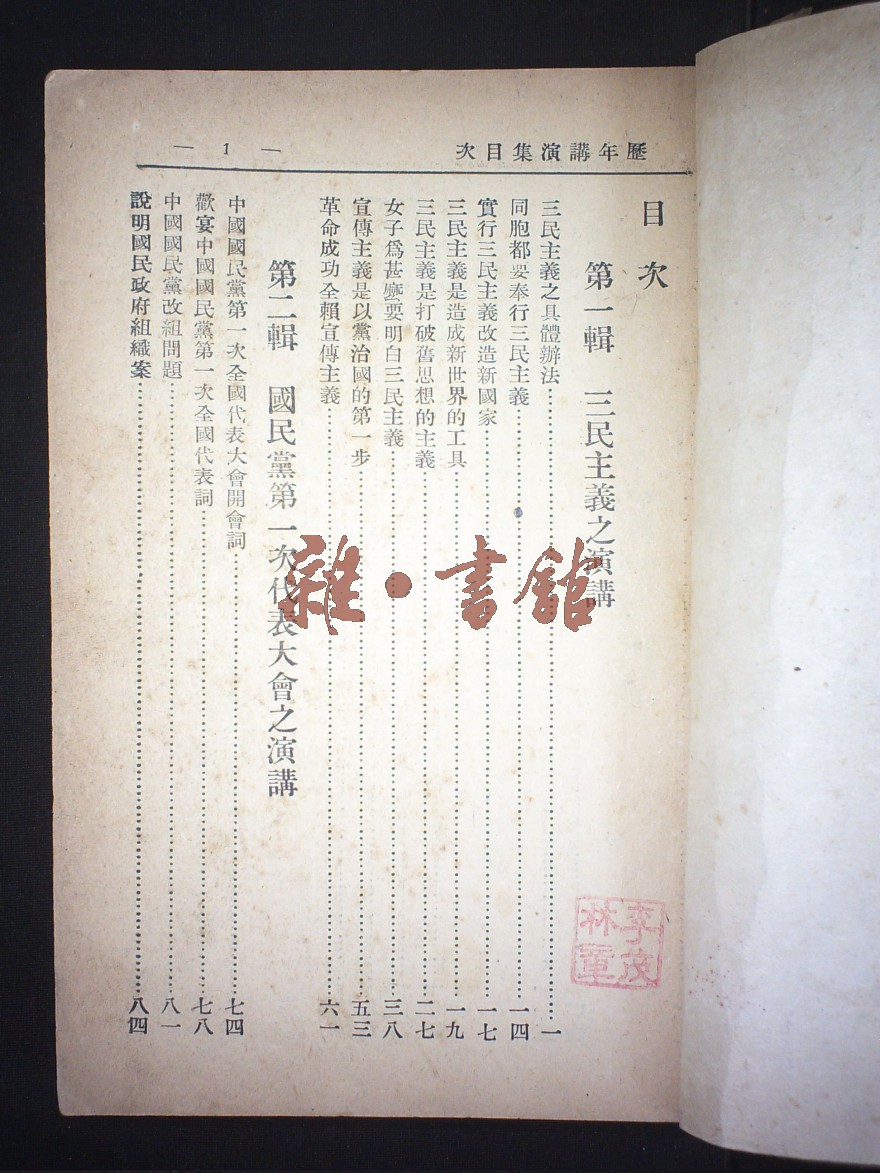 歷年講演集目次
— 1 —
目次
第一輯 三民主義之演講
三民主義之具體辦法……一
同胞都要奉行三民主義……一四
實行三民主義改造新國家……一七
三民主義是造成新世界的工具……一九
三民主義是打破舊思想的主義……二七
女子爲甚麼要明白三民主義……三八
宣傳主義是以黨治國的第一步……五三
革命成功全賴宣傳主義……六一
第二輯 國民黨第一次代表大會之演講
中國國民黨第一次全國代表大會開會詞……七四
歡宴中國國民黨第一次全國代表詞……七八
中國國民黨改組問題……八一
說明國民政府組織案……八四
雜·書館
李茂
林章